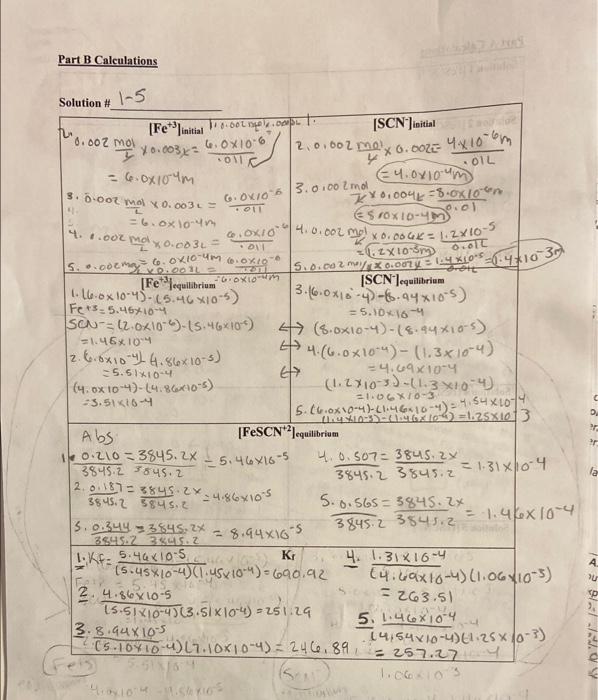 Part B Calculations
Solution # 1-5
[Fe+3]initial
0.002 mol/L x 0.003L = 6.0x10-6 / .011
= 6.0x10-4m
3. 0.002 mol/L x 0.003L = 6.0x10-6 / .011
= 6.0x10-4m
4. 0.002 mol/L x 0.003L = 6.0x10-6 / .011
= 6.0x10-4m
5. 0.002 mol/L x 0.003L = 6.0x10-6 / .011
= 6.0x10-4m
[SCN-]initial
2. 0.002 mol/L x 0.002 = 4x10-6m / .01L
= 4.0x10-4m
3. 0.002 mol/L x 0.004L = 8.0x10-6m / 0.01
= 8.0x10-4m
4. 0.002 mol/L x 0.006L = 1.2x10-5 / 0.01L
= 1.2x10-3m
5. 0.002 mol/L x 0.007L = 1.4x10-5 / 0.01L = 1.4x10-3m
[Fe+3]equilibrium
1. (6.0x10-4)-(5.46x10-5)
Fe+3 = 5.45x10-4
SCN- = (2.0x10-4)-(5.46x10-5)
= 1.45x10-4
2. (6.0x10-4)-(4.86x10-5)
= 5.51x10-4
(4.0x10-4)-(4.86x10-5)
= 3.51x10-4
[SCN-]equilibrium
3. (6.0x10-4)-(8.94x10-5)
= 5.10x10-4
(8.0x10-4)-(8.94x10-5)
4. (6.0x10-4)-(1.3x10-4)
= 4.69x10-4
(1.2x10-3)-(1.3x10-4)
= 1.06x10-3
5. (6.0x10-4)-(1.46x10-4) = 4.54x10-4
(1.4x10-3)-(1.46x10-4) = 1.25x10-3
[FeSCN+2]equilibrium
Abs
1. 0.210 / 3845.2 = 3845.2x / 3845.2 = 5.46x10-5
2. 0.187 / 3845.2 = 3845.2x / 3845.2 = 4.86x10-5
3. 0.344 / 3845.2 = 3845.2x / 3845.2 = 8.94x10-5
4. 0.507 / 3845.2 = 3845.2x / 3845.2 = 1.31x10-4
5. 0.565 / 3845.2 = 3845.2x / 3845.2 = 1.46x10-4
Kf
1. Kf = 5.46x10-5 / (5.45x10-4)(1.45x10-4) = 690.92
2. 4.86x10-5 / (5.51x10-4)(3.51x10-4) = 251.29
3. 8.94x10-5 / (5.10x10-4)(7.10x10-4) = 246.89
4. 1.31x10-4 / (4.69x10-4)(1.06x10-3)
= 263.51
5. 1.46x10-4 / (4.54x10-4)(1.25x10-3)
= 257.27
1.06x10-3